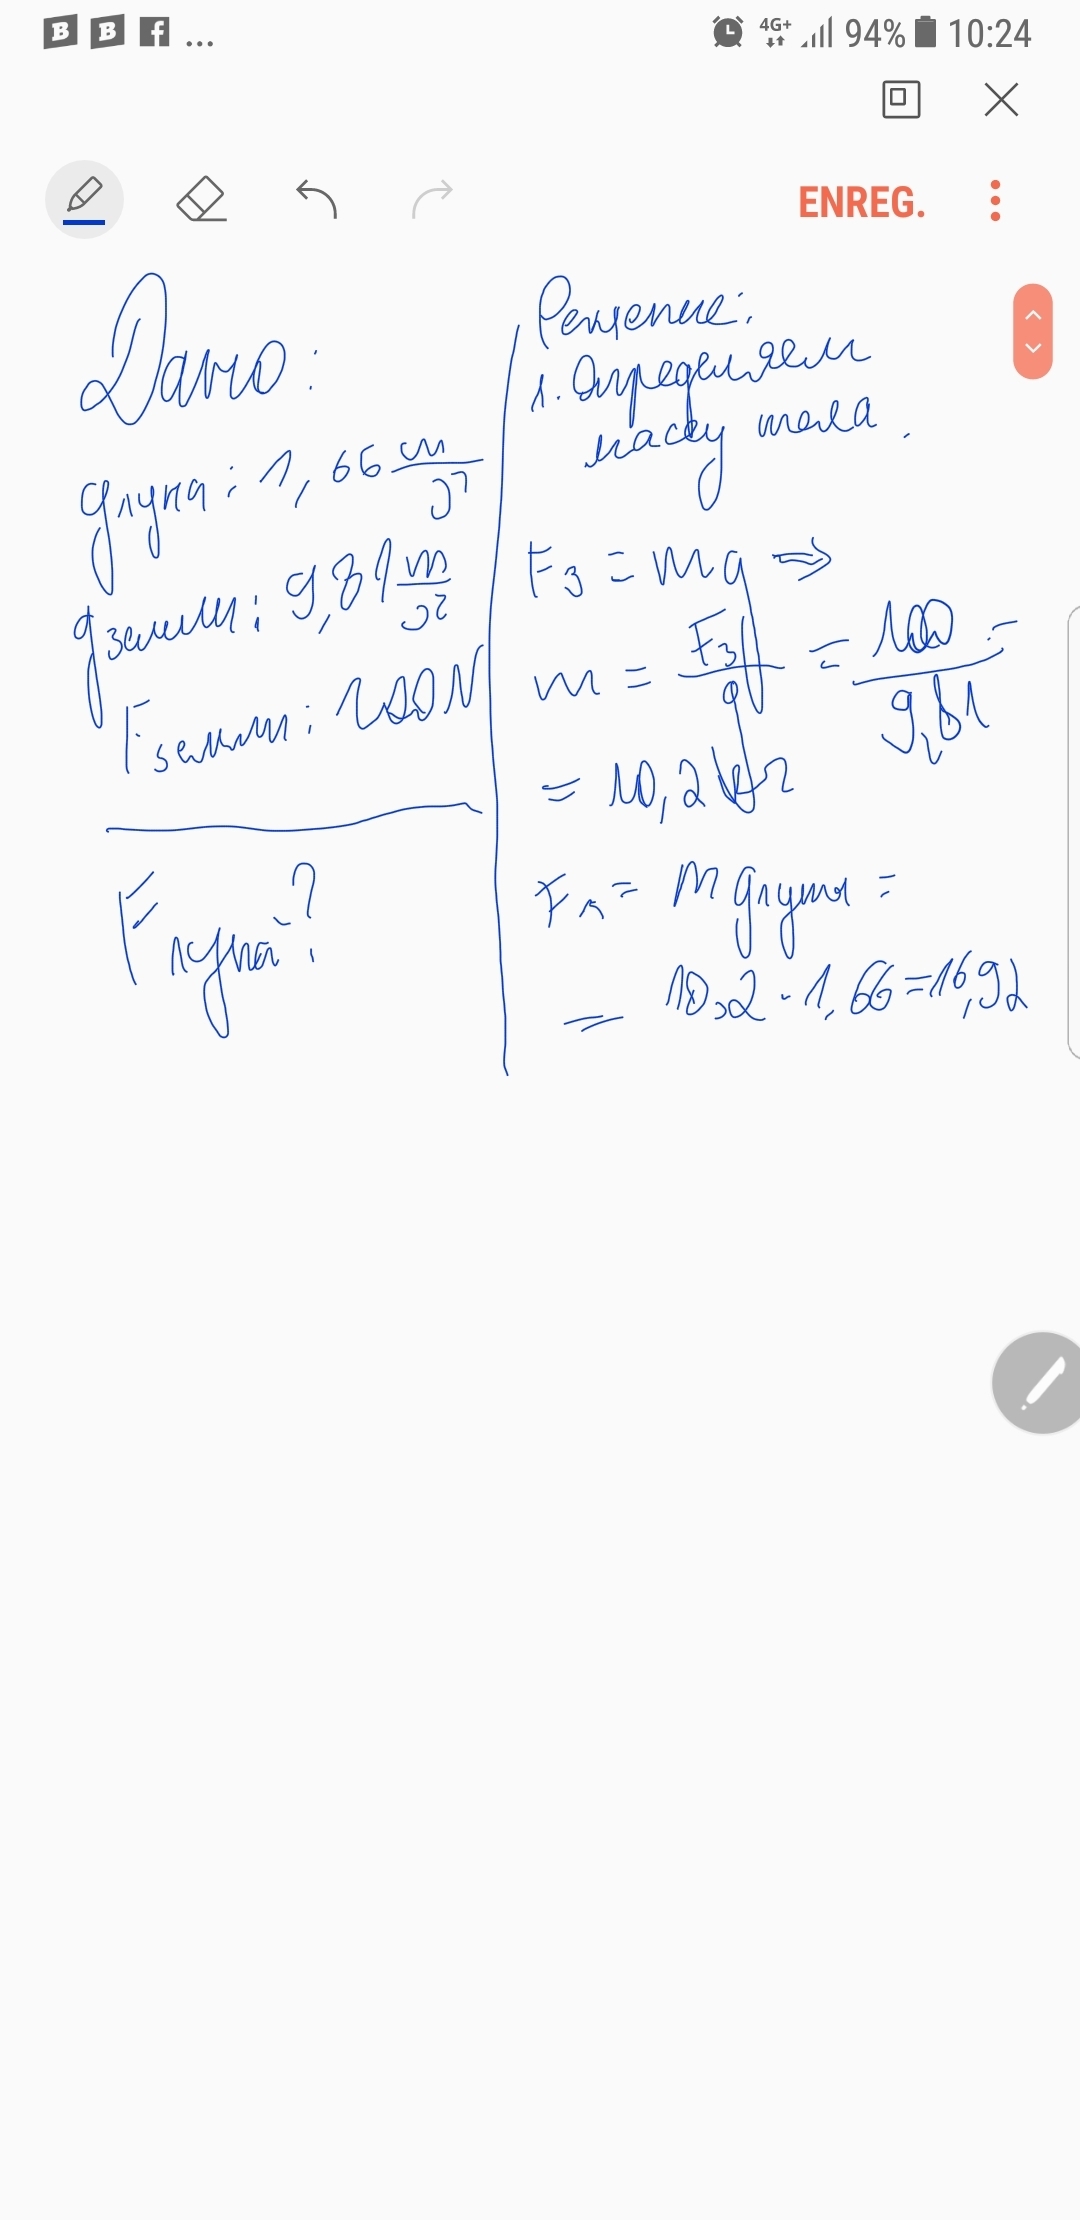 B B f ... 4G+ 94% 10:24
ENREG.
Дано:
gлуна: 1,66 m/с²
gземли: 9,81 m/с²
Fземли: 100N
Fлуна?
Решение:
1. Определяем
массу тела.
F₃ = mg ⇒
m = F₃/g = 100/9,81 =
= 10,2 кг
Fл = m gлуны =
= 10,2 · 1,66 = 16,92